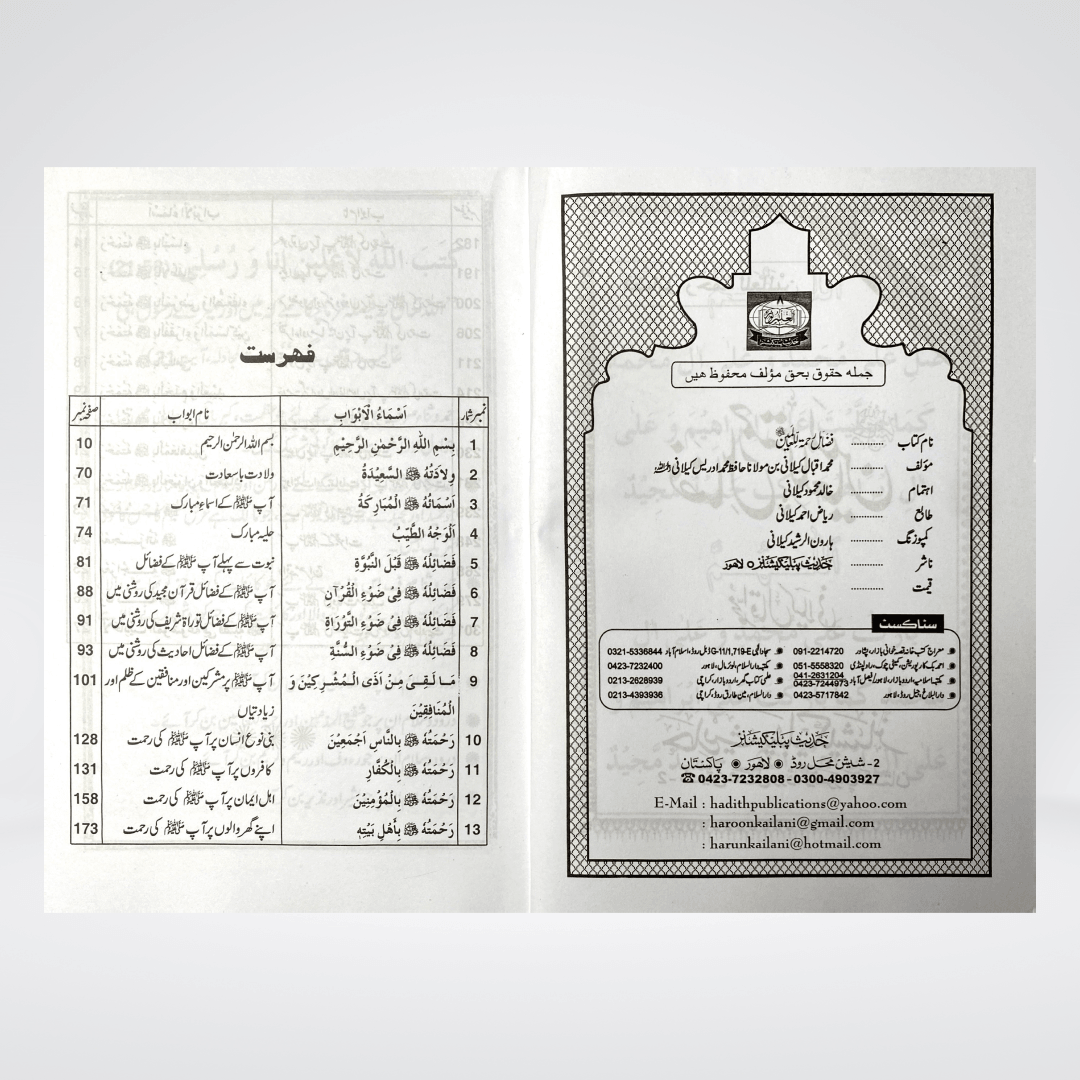 جملہ حقوق بحق مؤلف محفوظ ہیں
نام کتاب ............ فضائل رحمۃ للعالمین ﷺ
مؤلف ............ محمد اقبال کیلانی بن مولانا حافظ محمد ادریس کیلانی
اہتمام ............ خالد محمود کیلانی
طابع ............ ریاض احمد کیلانی
کمپوزنگ ............ ہارون الرشید کیلانی
ناشر ............ حدیث پبلیکیشنز، لاہور
قیمت ............
سٹاکسٹ
معراج کتب خانہ قصہ خوانی بازار، پشاور 091-2214720
احمد بک کارپوریشن، کمیٹی چوک، راولپنڈی 051-5558320
مکتبہ اسلامیہ، اردو بازار، لاہور/فیصل آباد 041-2631204 0423-7244973
دارالبلاغ، چیٹرجی روڈ، لاہور 0423-5717842
G-11/1,719-E ڈبل روڈ، اسلام آباد 0321-5336844
مکتبہ دارالسلام، لوئر مال، لاہور 0423-7232400
علمی کتاب گھر، اردو بازار، کراچی 0213-2628939
دارالسلام، مین طارق روڈ، کراچی 0213-4393936
حدیث پبلیکیشنز
2- شیش محل روڈ ◉ لاہور ◉ پاکستان
☎ 0423-7232808 - 0300-4903927
E-Mail : hadithpublications@yahoo.com
: haroonkailani@gmail.com
: harunkailani@hotmail.com
فہرست
نمبر شمار اَسْمَاءُ الْاَبْوَابِ نام ابواب صفحہ نمبر
1 بِسْمِ اللّٰهِ الرَّحْمٰنِ الرَّحِيْمِ بسم اللہ الرحمٰن الرحیم 10
2 وِلَادَتُهُ ﷺ السَّعِيْدَةُ ولادت باسعادت 70
3 اَسْمَائُهُ ﷺ الْمُبَارَكَةُ آپ ﷺ کے اسماء مبارک 71
4 اَلْوَجْهُ الطَّيِّبُ حلیہ مبارک 74
5 فَضَائِلُهُ ﷺ قَبْلَ النُّبُوَّةِ نبوت سے پہلے آپ ﷺ کے فضائل 81
6 فَضَائِلُهُ ﷺ فِيْ ضَوْءِ الْقُرْآنِ آپ ﷺ کے فضائل قرآن مجید کی روشنی میں 88
7 فَضَائِلُهُ ﷺ فِيْ ضَوْءِ التَّوْرَاةِ آپ ﷺ کے فضائل توراۃ شریف کی روشنی میں 91
8 فَضَائِلُهُ ﷺ فِيْ ضَوْءِ السُّنَّةِ آپ ﷺ کے فضائل احادیث کی روشنی میں 93
9 مَا لَقِيَ مِنْ اَذَى الْمُشْرِكِيْنَ وَ آپ ﷺ پر مشرکین اور منافقین کے ظلم اور 101
الْمُنَافِقِيْنَ زیادتیاں
10 رَحْمَتُهُ ﷺ بِالنَّاسِ اَجْمَعِيْنَ بنی نوع انسان پر آپ ﷺ کی رحمت 128
11 رَحْمَتُهُ ﷺ بِالْكُفَّارِ کافروں پر آپ ﷺ کی رحمت 131
12 رَحْمَتُهُ ﷺ بِالْمُؤْمِنِيْنَ اہل ایمان پر آپ ﷺ کی رحمت 158
13 رَحْمَتُهُ ﷺ بِأَهْلِ بَيْتِهِ اپنے گھر والوں پر آپ ﷺ کی رحمت 173